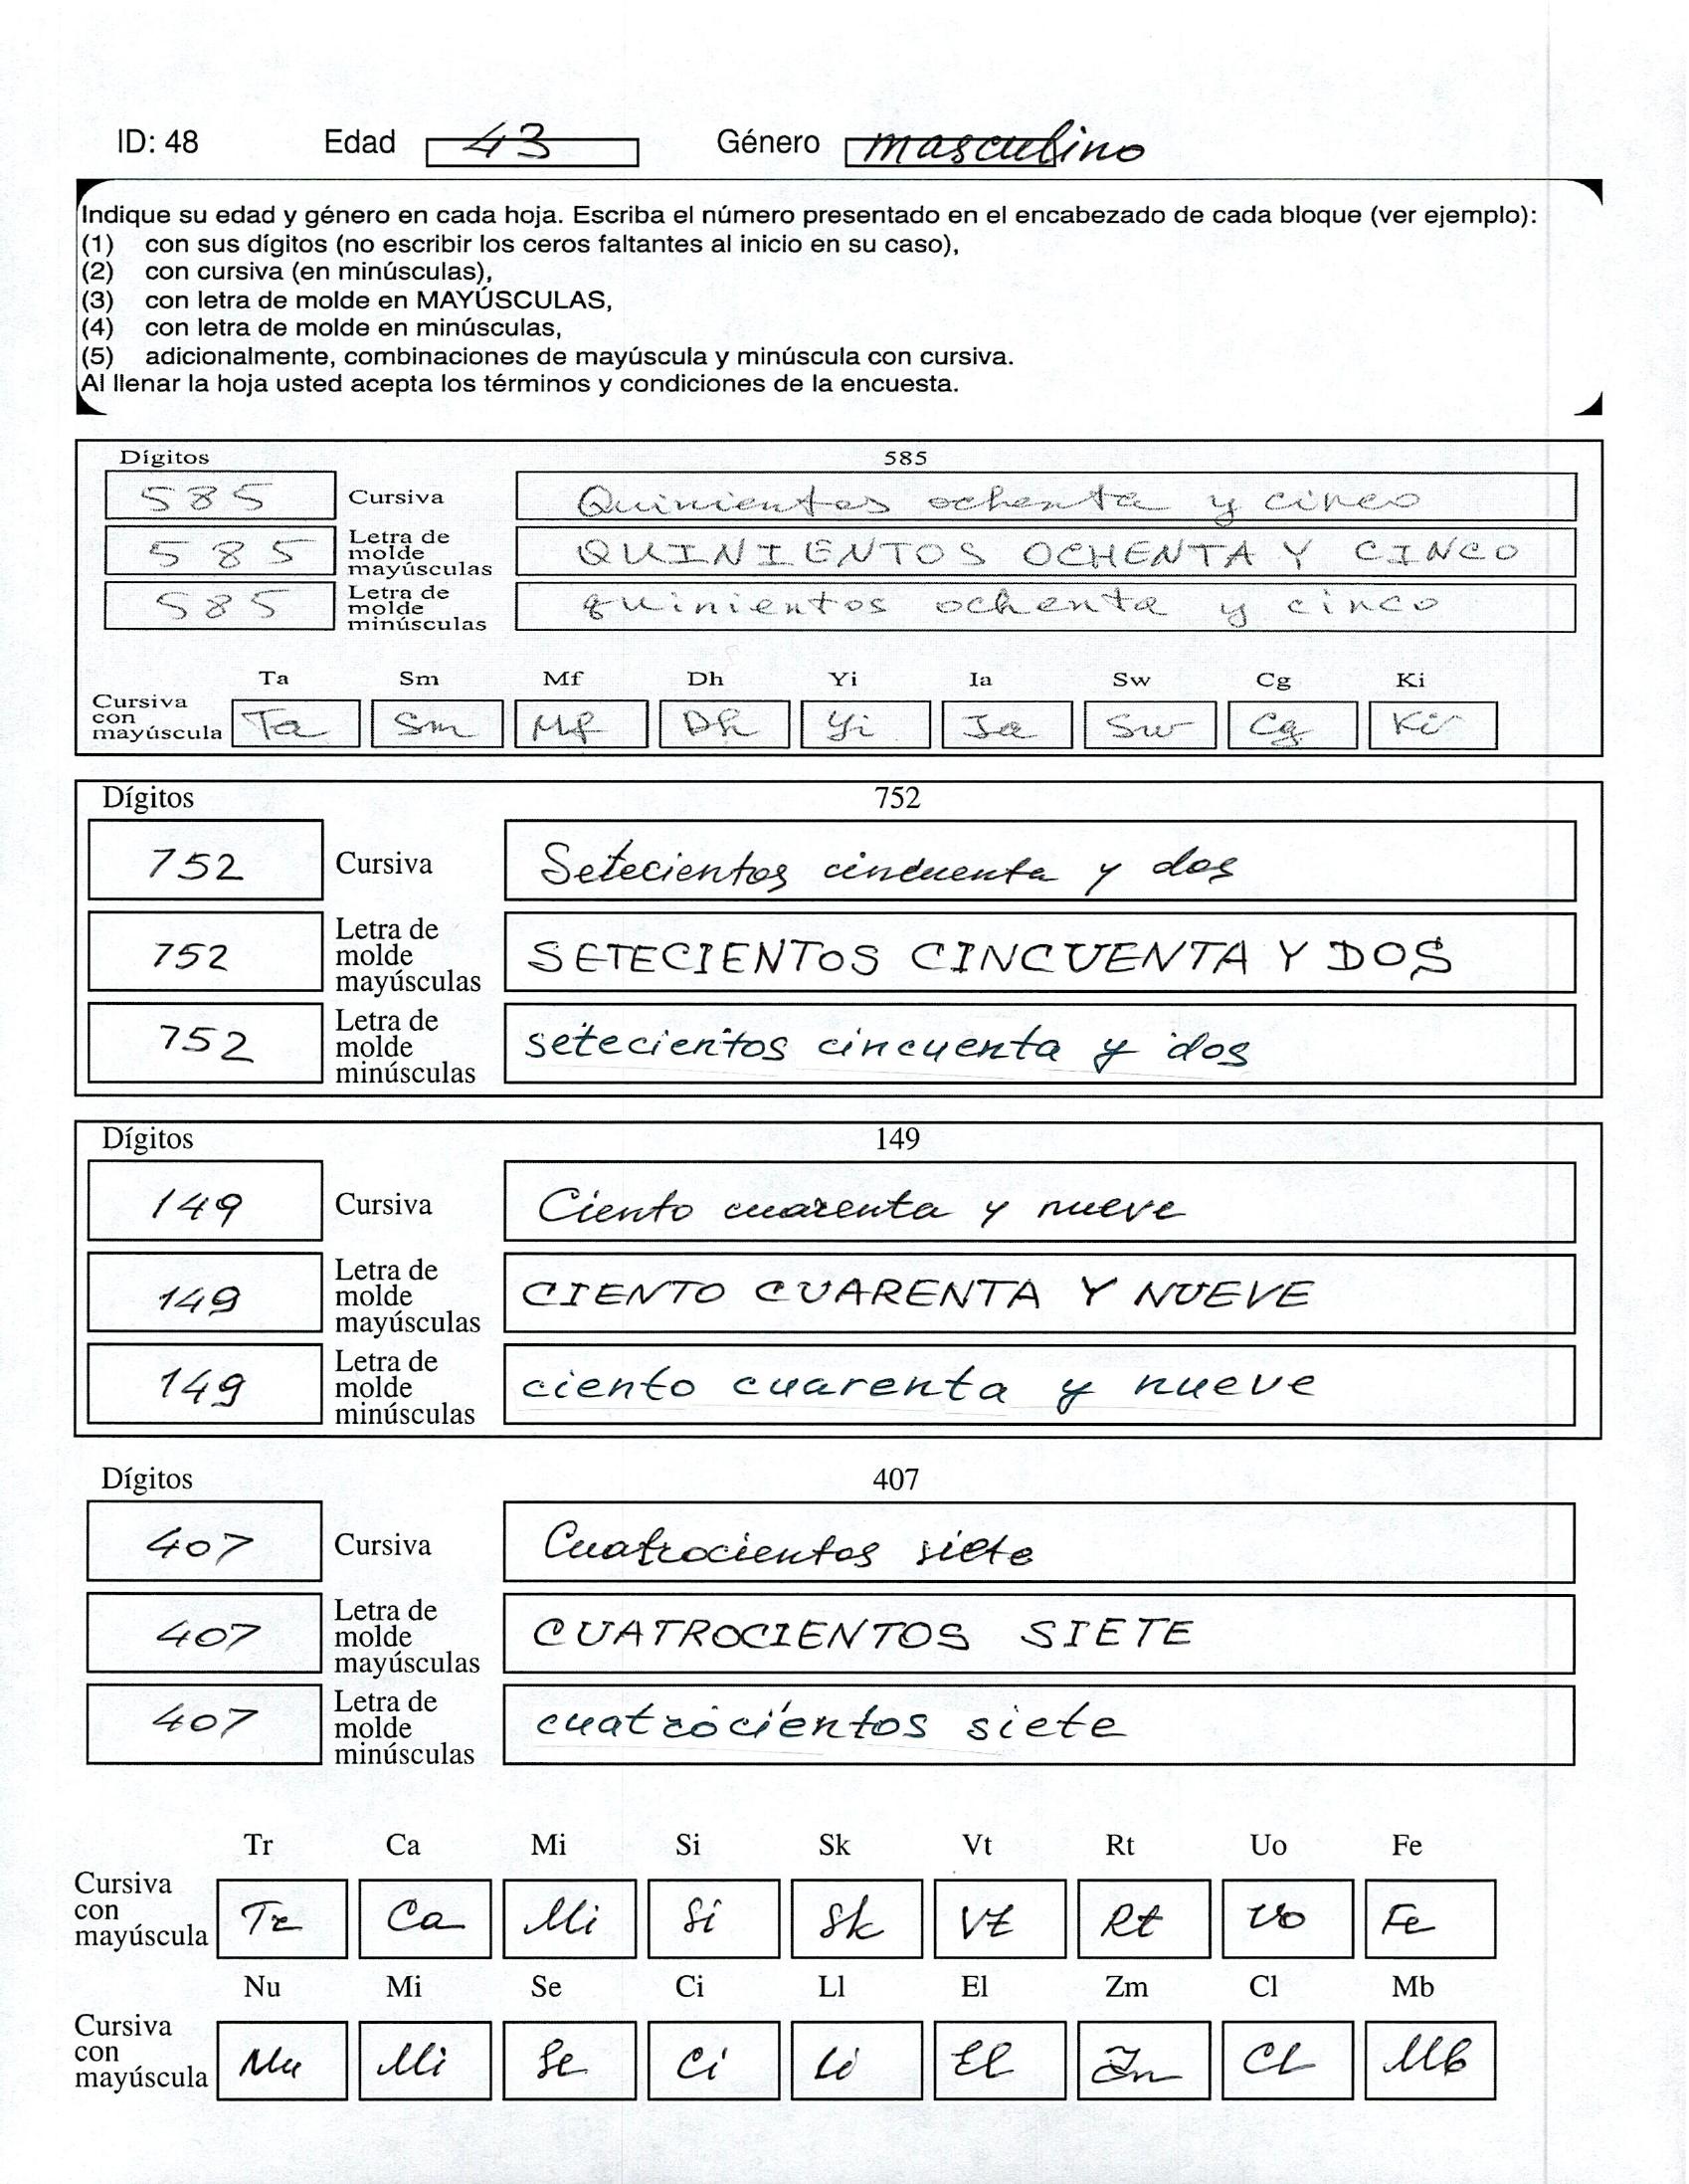 ID: 48 Edad 43 Género masculino
Indique su edad y género en cada hoja. Escriba el número presentado en el encabezado de cada bloque (ver ejemplo):
(1) con sus dígitos (no escribir los ceros faltantes al inicio en su caso),
(2) con cursiva (en minúsculas),
(3) con letra de molde en MAYÚSCULAS,
(4) con letra de molde en minúsculas,
(5) adicionalmente, combinaciones de mayúscula y minúscula con cursiva.
Al llenar la hoja usted acepta los términos y condiciones de la encuesta.
Dígitos 585
585 Cursiva Quinientos ochenta y cinco
585 Letra de molde mayúsculas QUINIENTOS OCHENTA Y CINCO
585 Letra de molde minúsculas quinientos ochenta y cinco
Ta Sm Mf Dh Yi Ia Sw Cg Ki
Cursiva con mayúscula Ta Sm Mf Dh Yi Ia Sw Cg Ki
Dígitos 752
752 Cursiva Setecientos cincuenta y dos
752 Letra de molde mayúsculas SETECIENTOS CINCUENTA Y DOS
752 Letra de molde minúsculas setecientos cincuenta y dos
Dígitos 149
149 Cursiva Ciento cuarenta y nueve
149 Letra de molde mayúsculas CIENTO CUARENTA Y NUEVE
149 Letra de molde minúsculas ciento cuarenta y nueve
Dígitos 407
407 Cursiva Cuatrocientos siete
407 Letra de molde mayúsculas CUATROCIENTOS SIETE
407 Letra de molde minúsculas cuatrocientos siete
Tr Ca Mi Si Sk Vt Rt Uo Fe
Cursiva con mayúscula Tr Ca Mi Si Sk Vt Rt Uo Fe
Nu Mi Se Ci Ll El Zm Cl Mb
Cursiva con mayúscula Nu Mi Se Ci Li El Cl Mb